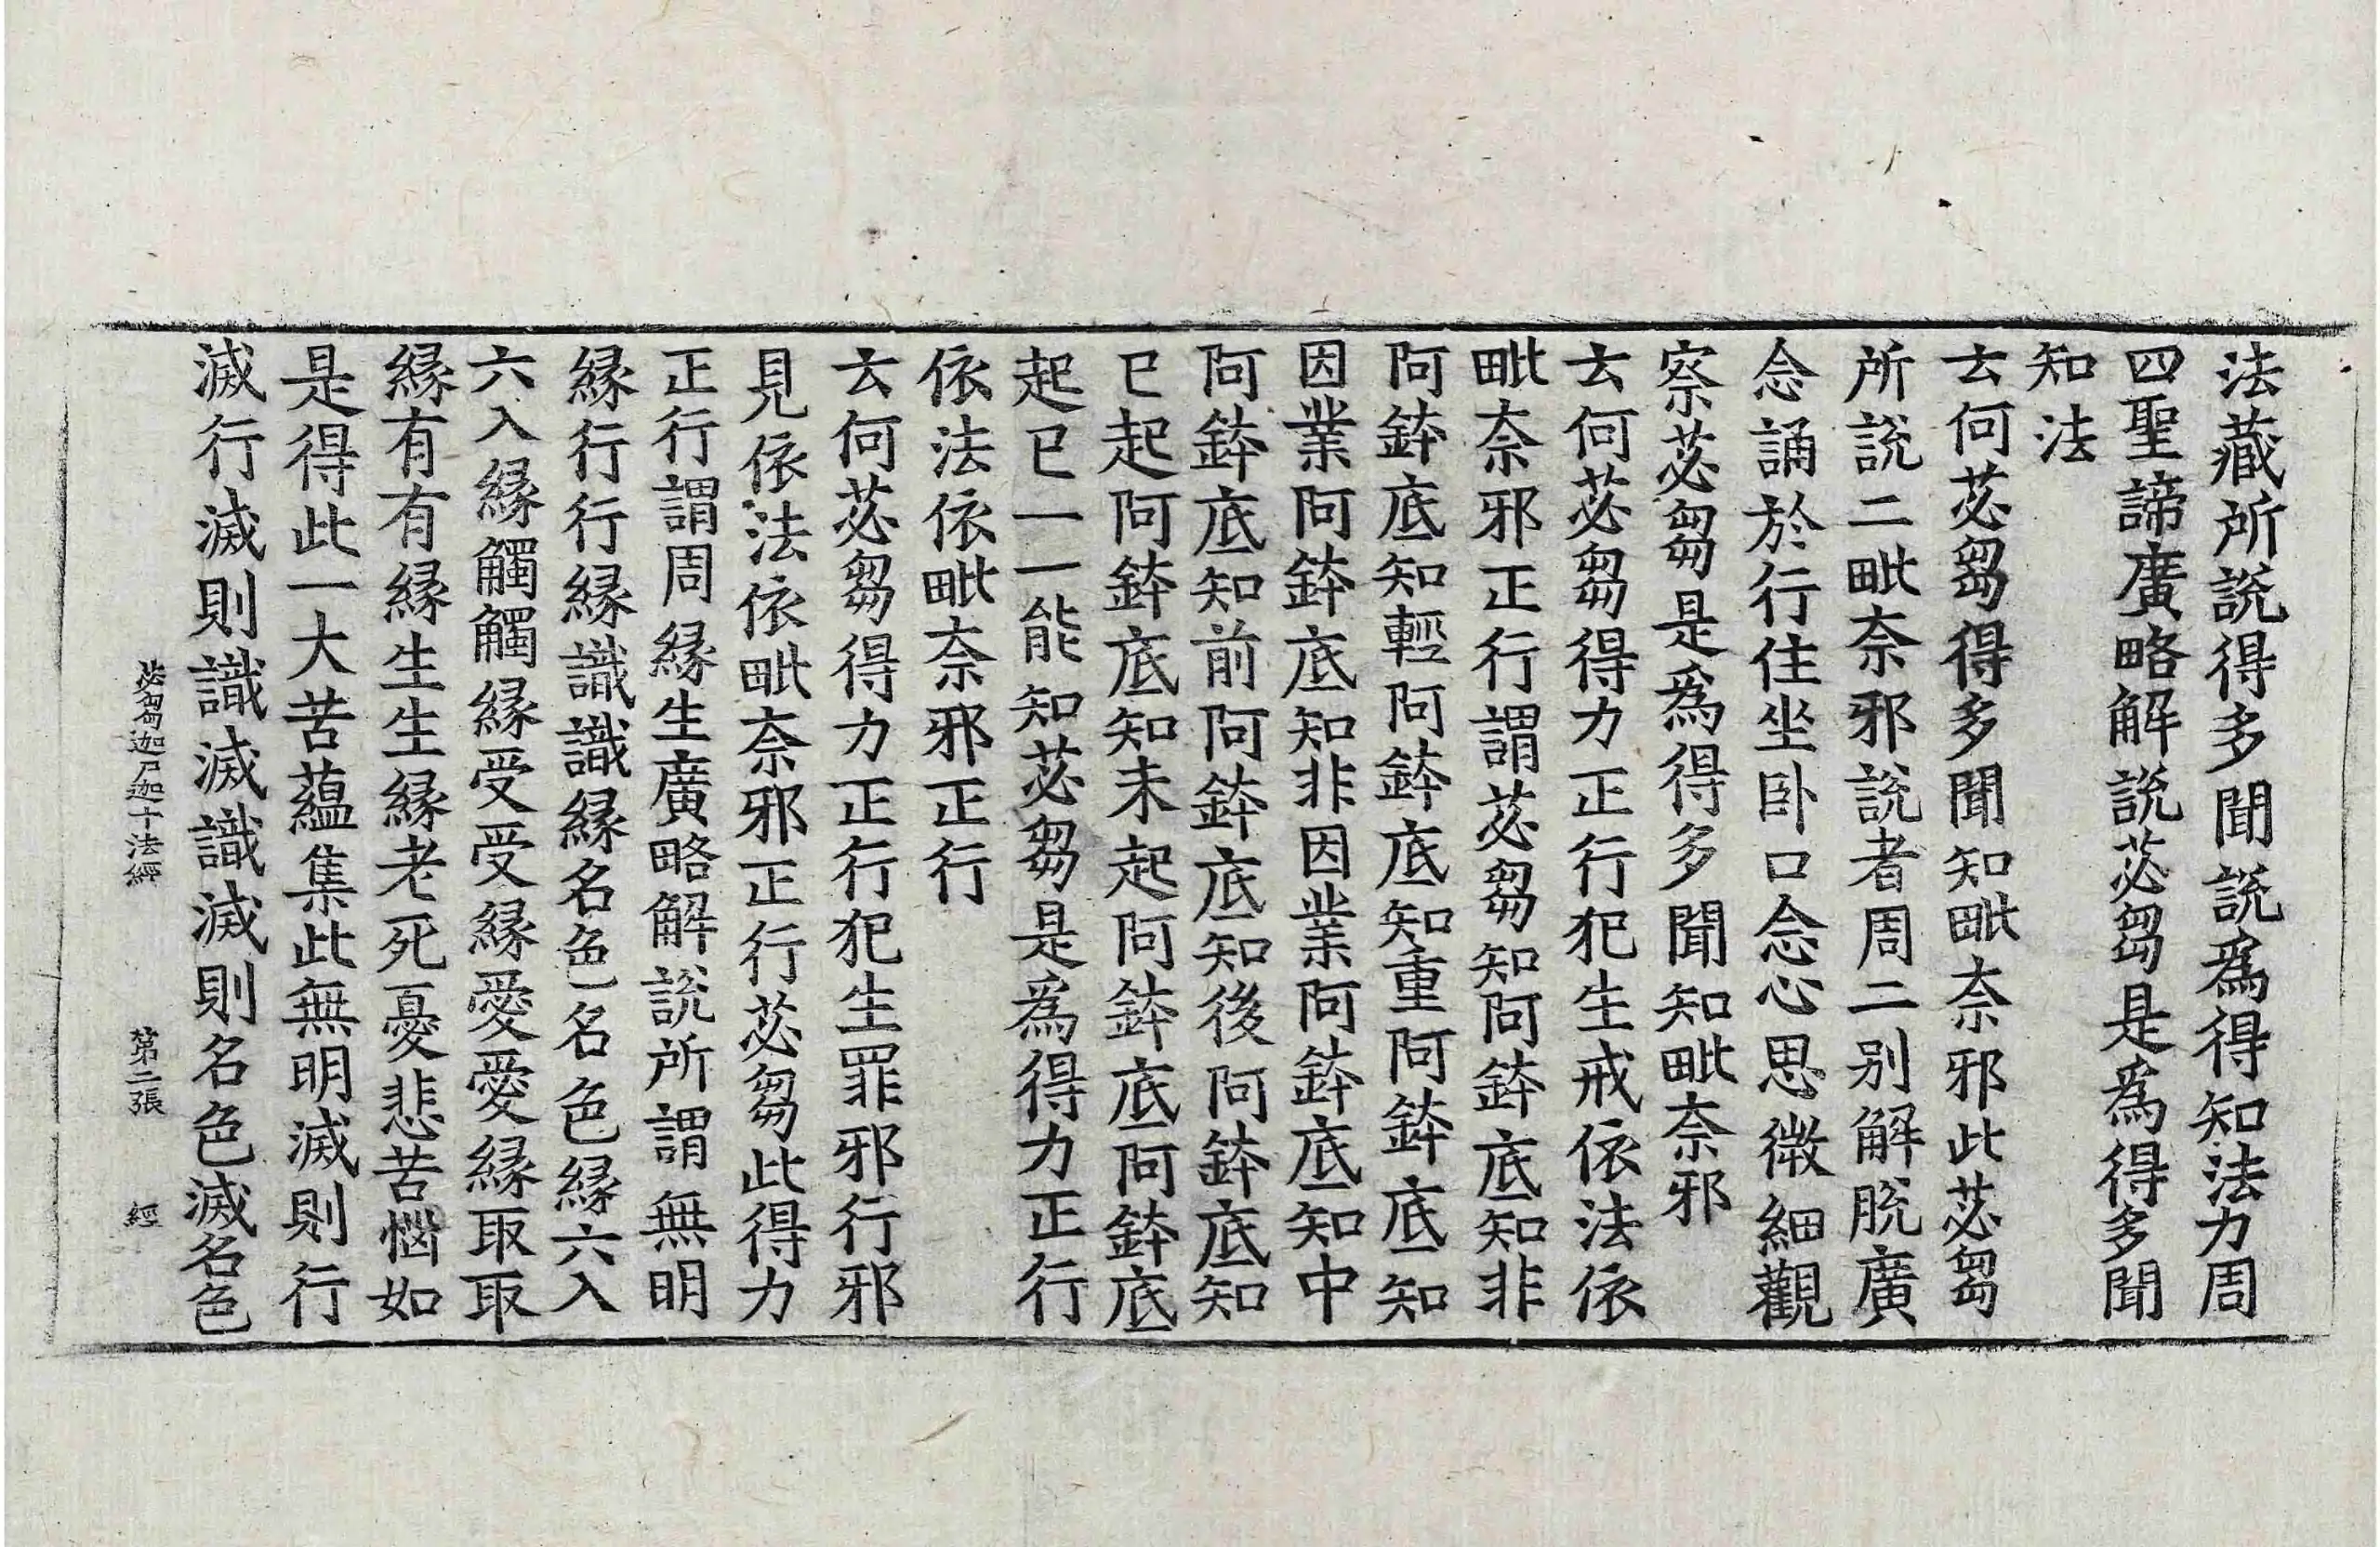 法藏所說得多聞說爲得知法力周
四聖諦廣略解說苾芻是爲得多聞
知法
云何苾芻得多聞知毗奈邪此苾芻
所說二毗奈邪說者周二别解脫廣
念誦於行住坐卧口念心思微細觀
察苾芻是爲得多聞知毗奈邪
云何苾芻得力正行犯生戒依法依
毗奈邪正行謂苾芻知阿鉢底知非
阿鉢底知輕阿鉢底知重阿鉢底知
因業阿鉢底知非因業阿鉢底知中
阿鉢底知前阿鉢底知後阿鉢底知
已起阿鉢底知未起阿鉢底阿鉢底
起已一一能知苾芻是爲得力正行
依法依毗奈邪正行
云何苾芻得力正行犯生罪邪行邪
見依法依毗奈邪正行苾芻此得力
正行謂周縁生廣略解說所謂無明
縁行行縁識識縁名色名色縁六入
六入縁觸觸縁受受縁愛愛縁取取
縁有有縁生生縁老死憂悲苦惱如
是得此一大苦蘊集此無明滅則行
滅行滅則識滅識滅則名色滅名色
苾芻迦尸迦十法經 第二張 經